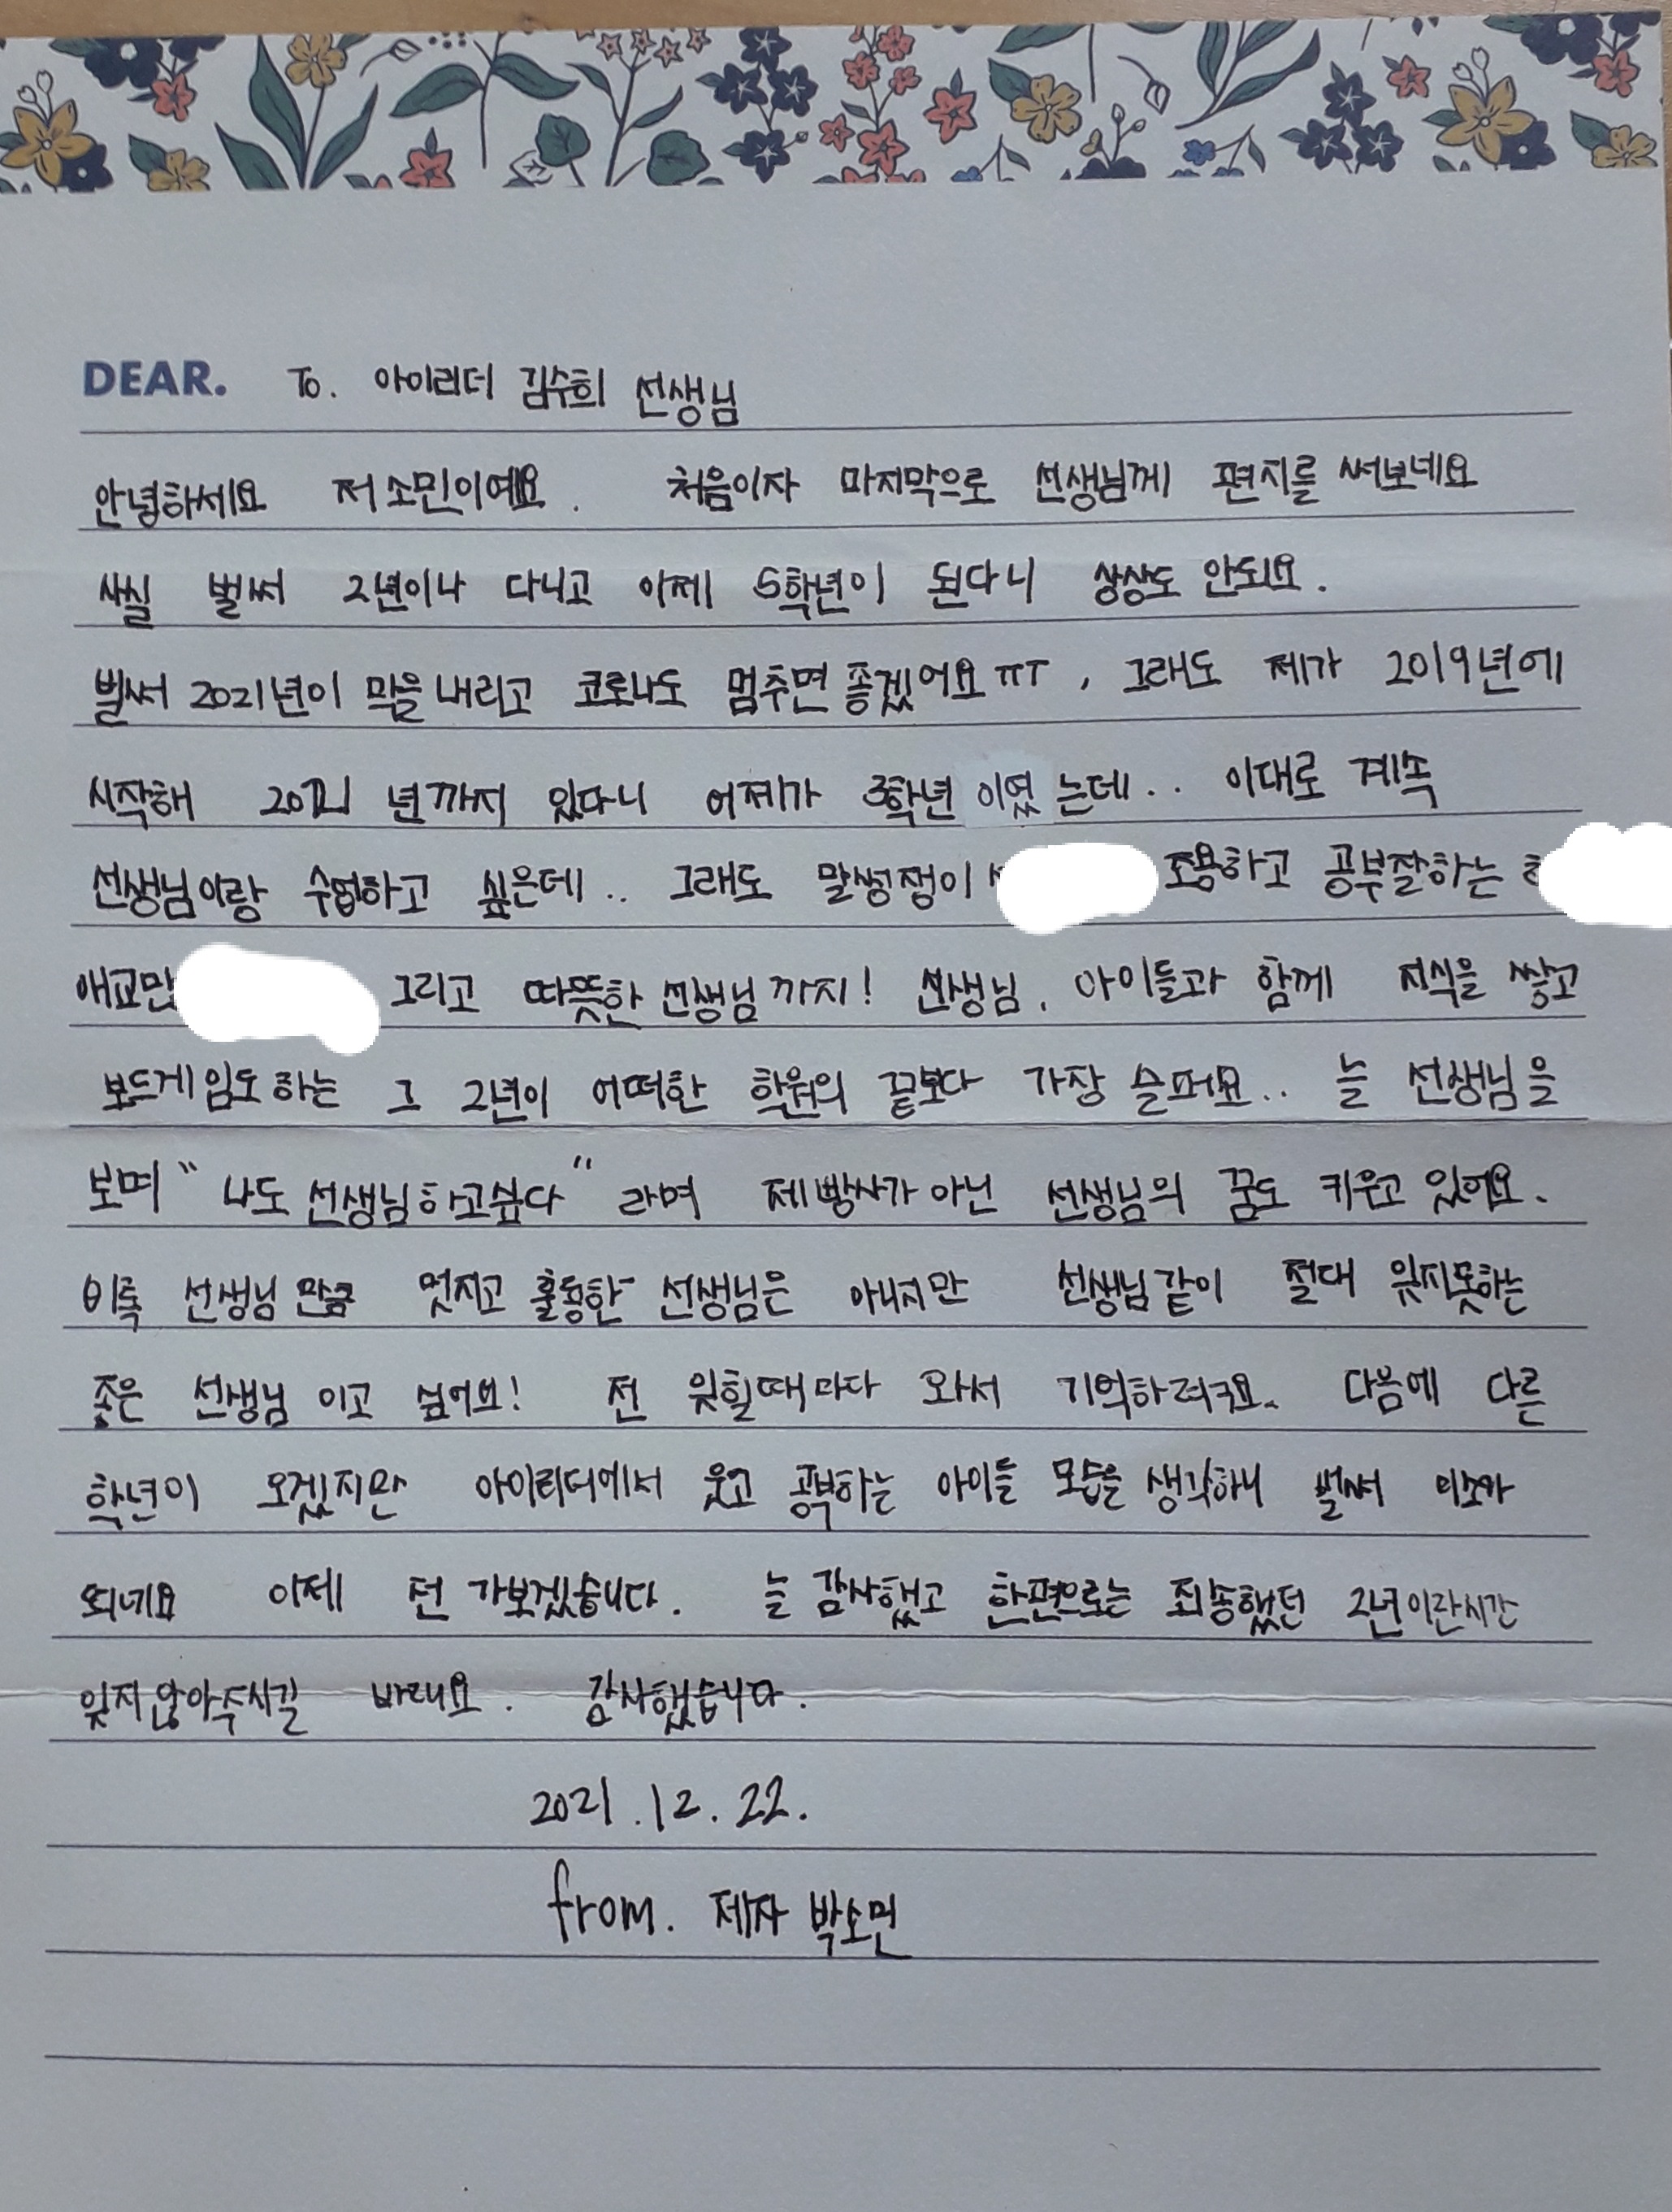 DEAR. To. 아이리더 김수희 선생님
안녕하세요 저 소민이에요. 처음이자 마지막으로 선생님께 편지를 써보네요
사실 벌써 2년이나 다니고 이제 5학년이 된다니 상상도 안되요.
벌써 2021년이 막을 내리고 코로나도 멈추면 좋겠어요 ㅠㅠ, 그래도 제가 2019년에
시작해 2021 년까지 있다니 어제가 3학년 이였는데.. 이대로 계속
선생님이랑 수업하고 싶은데.. 그래도 말썽쟁이 조용하고 공부잘하는
애교만 그리고 따뜻한 선생님까지! 선생님, 아이들과 함께 지식을 쌓고
보드게임도 하는 그 2년이 어떠한 학원의 끝보다 가장 슬퍼요.. 늘 선생님을
보며 "나도 선생님하고싶다" 라며 제빵사가 아닌 선생님의 꿈도 키우고 있어요.
비록 선생님 만큼 멋지고 훌륭한 선생님은 아니지만 선생님같이 절대 잊지못하는
좋은 선생님 이고 싶어요! 전 잊힐때마다 와서 기억하려구요. 다음에 다른
학년이 오겠지만 아이리더에서 웃고 공부하는 아이들 모습을 생각하니 벌써 미소가
띄네요 이제 전 가보겠습니다. 늘 감사했고 한편으로는 죄송했던 2년이란시간
잊지않아주시길 바래요. 감사했습니다.
2021.12.22.
from. 제자 박소민